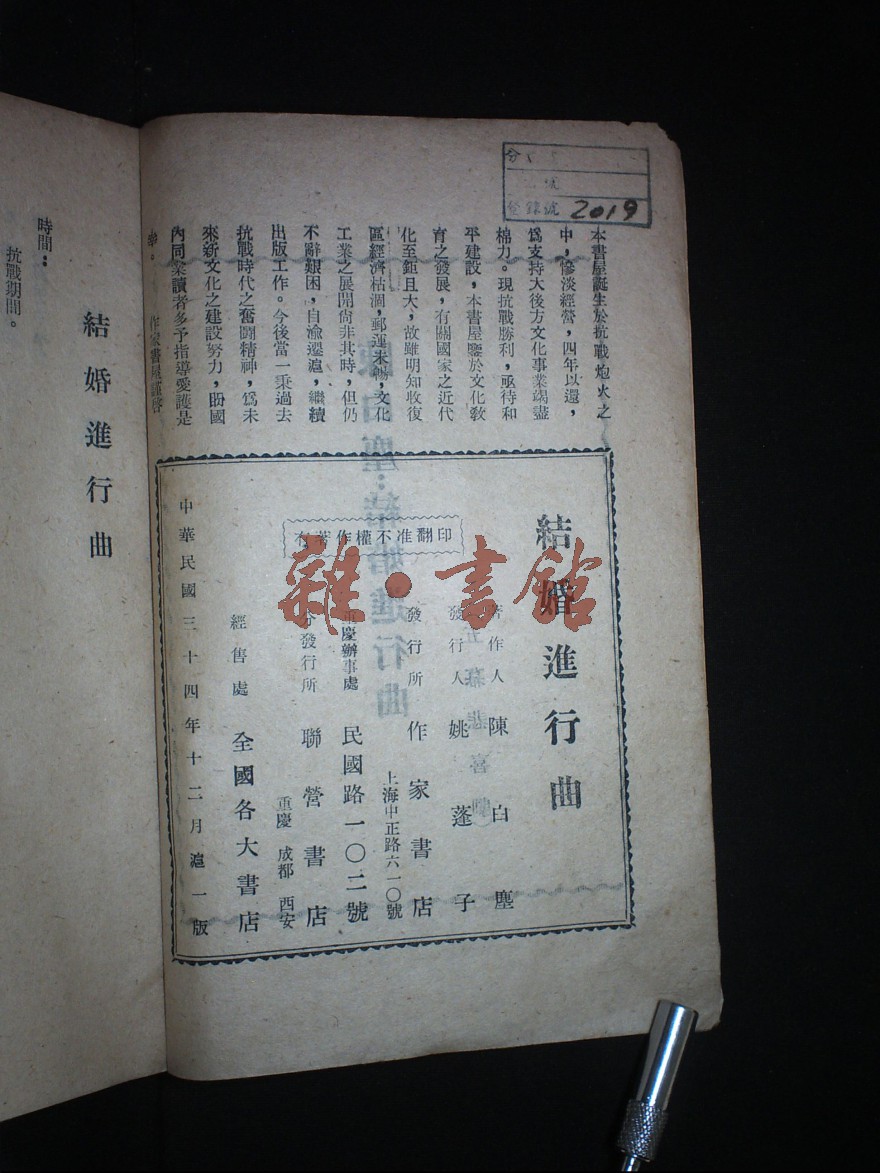 登錄號 2019
本書屋誕生於抗戰炮火之
中，慘淡經營，四年以還，
爲支持大後方文化事業竭盡
棉力。現抗戰勝利，亟待和
平建設，本書屋鑒於文化敎
育之發展，有關國家之近代
化至鉅且大，故雖明知收復
區經濟枯涸，郵運未暢，文化
工業之展開尙非其時，但仍
不辭艱困，自渝遷滬，繼續
出版工作。今後當一秉過去
抗戰時代之奮鬪精神，爲未
來新文化之建設努力，盼國
內同業讀者多予指導愛護是
幸。 作家書屋謹啓
結婚進行曲
著作人 陳白塵
發行人 姚蓬子
發行所 作家書店
上海中正路六一〇號
重慶辦事處 民國路一〇二號
分發行所 聯營書店
重慶 成都 西安
經售處 全國各大書店
中華民國三十四年十二月滬一版
有著作權不准翻印
雜·書館
結婚進行曲
時間：
抗戰期間。